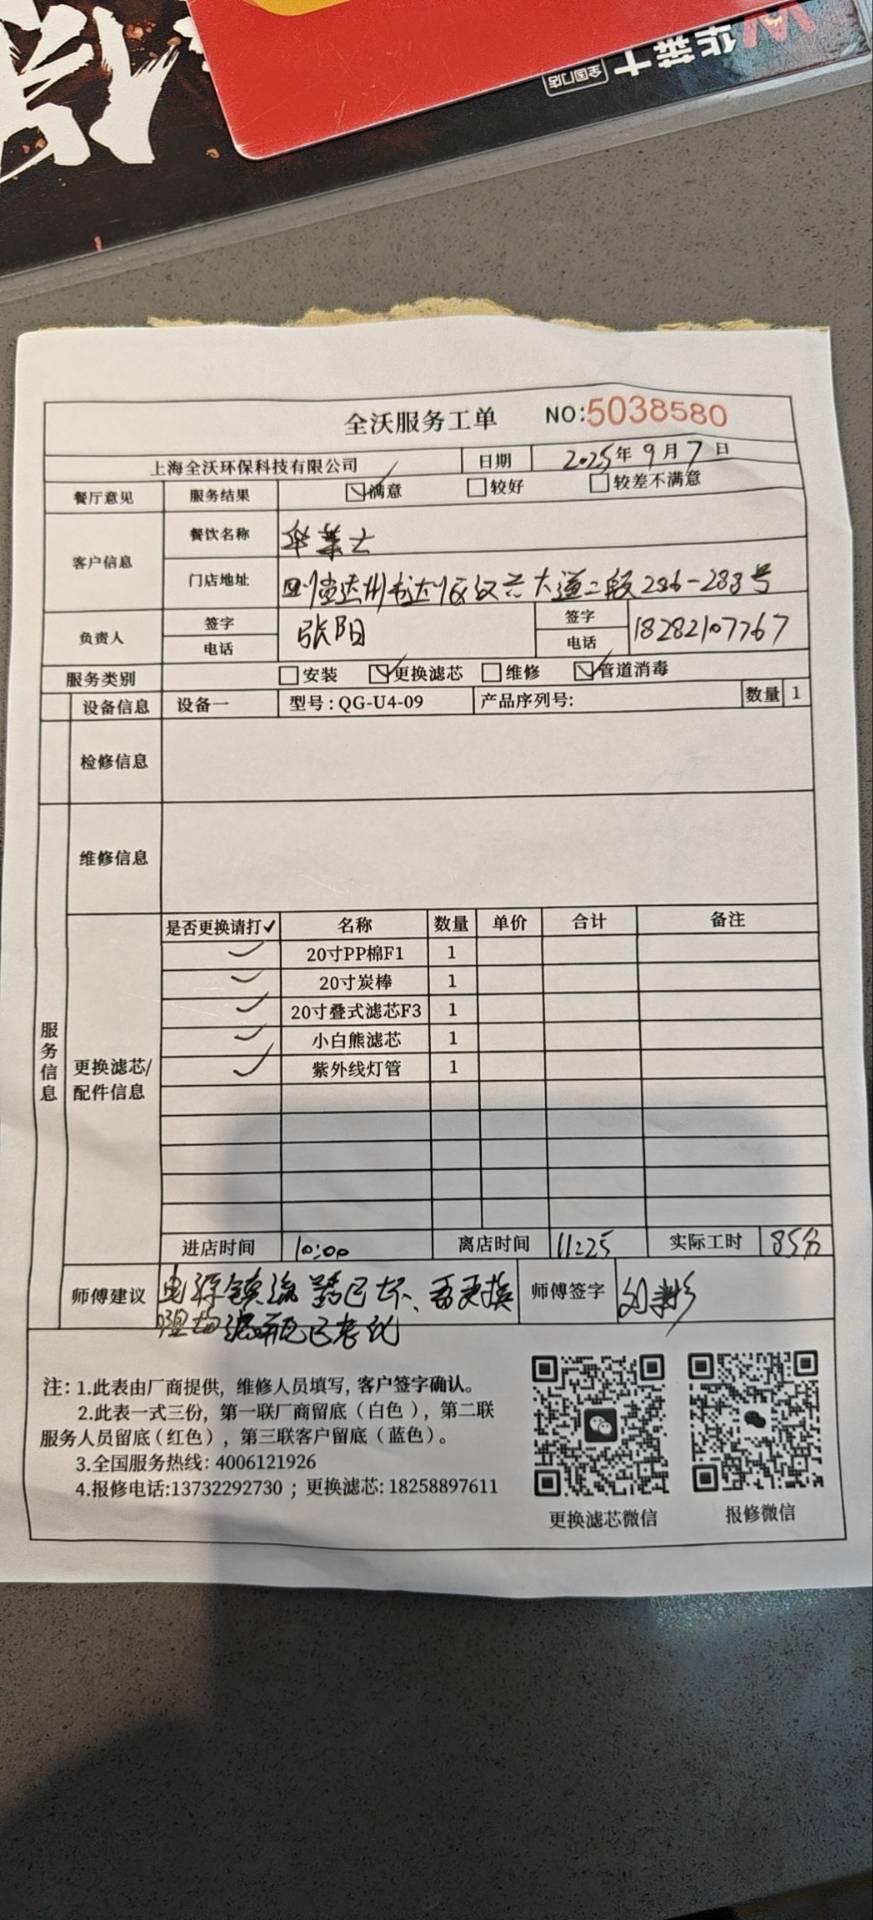 华莱士
全国门店
全沃服务工单 NO:5038580
上海全沃环保科技有限公司 日期 2025年9月7日
餐厅意见 服务结果 满意 较好 较差不满意
客户信息 餐饮名称 华莱士
门店地址 四川省达州市达川区汉兴大道二段286-288号
负责人 签字 张阳 签字
电话 电话 18282107767
服务类别 安装 更换滤芯 维修 管道消毒
设备信息 设备一 型号:QG-U4-09 产品序列号: 数量 1
检修信息
维修信息
服务信息
更换滤芯/配件信息
是否更换请打✓ 名称 数量 单价 合计 备注
✓ 20寸PP棉F1 1
✓ 20寸炭棒 1
✓ 20寸叠式滤芯F3 1
✓ 小白熊滤芯 1
✓ 紫外线灯管 1
进店时间 10:00 离店时间 11:25 实际工时 85分
师傅建议 电源镇流器已坏、需更换 师傅签字
滤瓶已老化
注: 1.此表由厂商提供, 维修人员填写, 客户签字确认。
2.此表一式三份, 第一联厂商留底(白色), 第二联
服务人员留底(红色), 第三联客户留底(蓝色)。
3.全国服务热线: 4006121926
4.报修电话:13732292730 ; 更换滤芯: 18258897611
更换滤芯微信 报修微信